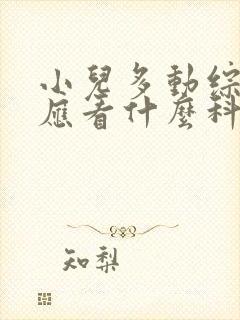 小兒多動綜
應看什麼科
知梨